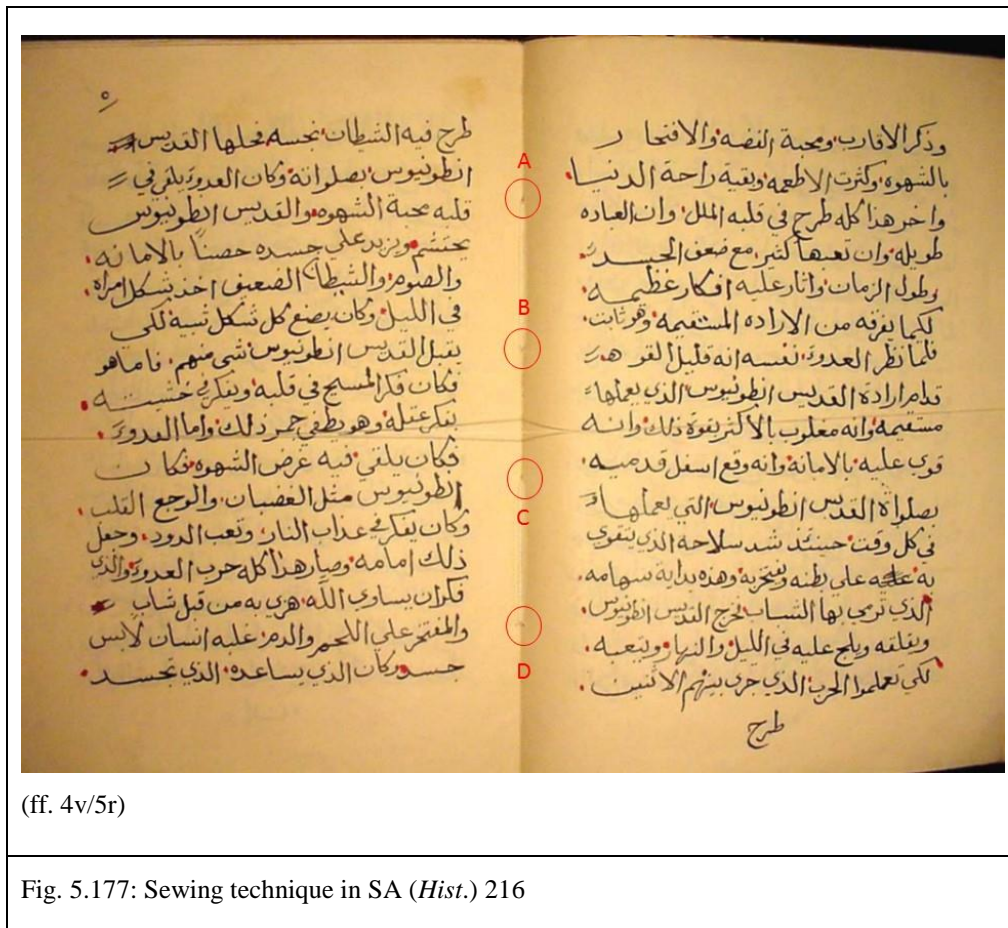 وذكر الاقارب ومحبة الفضه والافتخار
بالشهوه وكثرت الاطعمه وبقية راحة الدنيا
واخر هذا كله طرح في قلبه الملل وان العباده
طويله وان تعبها كثير مع ضعف الجسد
وطول الزمان واثار عليه افكار عظيمه
لكيما يفرقه من الاراده المستقيمه وهو ثابت
فلما نظر العدو نفسه انه قليل القوه
قدام ارادة القديس انطونيوس الذي يعملها
مستقيمه وانه مغلوب بالاكثر بقوة ذلك وانه
قوي عليه بالامانه وانه وقع اسفل قدميه
بصلواة القديس انطونيوس التي يعملها
في كل وقت حينئذ شد سلاحه الذي يتقوي
به علي بطنه ويفتخر به وهذه بداية سهامه
الذي ترمي بها الشباب القديس انطونيوس
ويقلقه ويلج عليه في الليل والنهار ويتعبه
لكي تعلموا الحرب الذي جري بينهم الاثنين
طرح
٥
طرح فيه الشيطان نجسه فحلها القديس
انطونيوس بصلواته وكان العدو يلقي في
قلبه محبة الشهوه والقديس انطونيوس
يحتشم ويزيد علي جسده حصناً بالامانه
والصلوم والشيطان الضعيف اخذ شكل امراه
في الليل وكان يصنع كل شكل شبيه لكي
يقبل القديس انطونيوس شي منهم فاما هو
فكان فكر المسيح في قلبه ويفكر في خشيته
بفكر عقله وهو يطفي جمر ذلك واما العدو
فكان يلقي فيه غرض الشهوه فكان
انطونيوس مثل الغضبان والوجع القلب
وكان يفكر في عذاب النار وتعب الدود وجعل
ذلك امامه وصار هذا كله حرب العدو والذي
فكر ان يساوي الله هزي به من قبل شاب
والمفتخر علي اللحم والدم غلبه انسان لابس
جسد وكان الذي يساعده الذي تجسد
A
B
C
D
(ff. 4v/5r)
Fig. 5.177: Sewing technique in SA (Hist.) 216